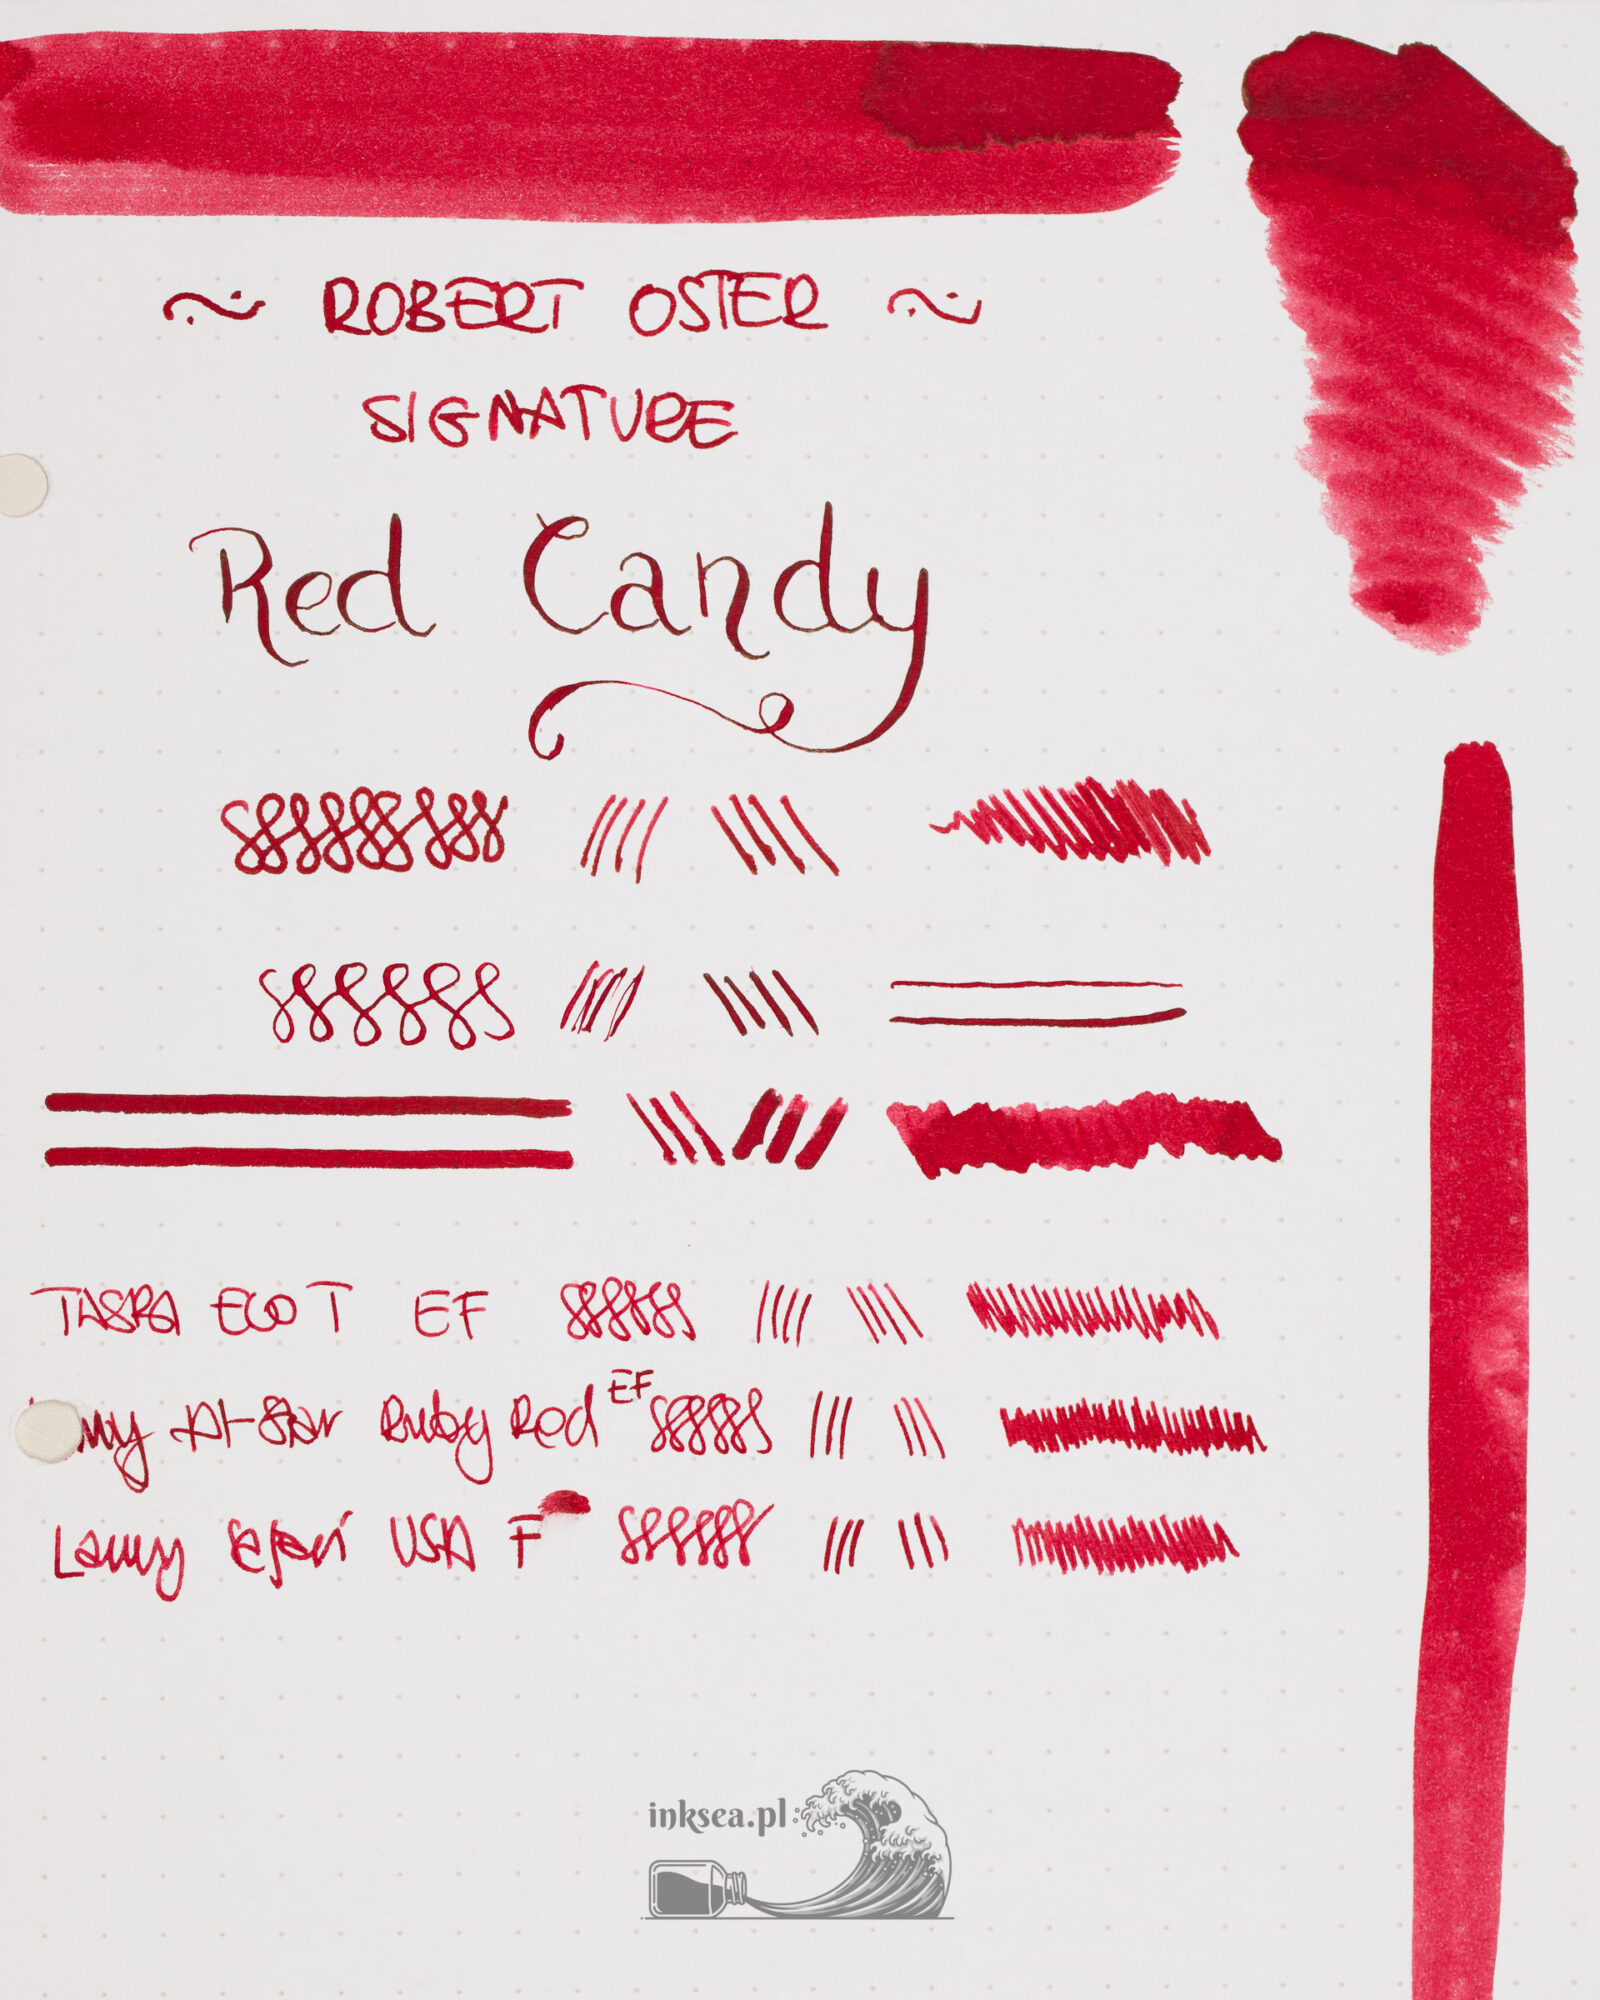 ~ ROBERT OSTER ~
SIGNATURE
Red Candy
ECO T EF
Al-Star Ruby Red EF
Lamy Safari USA F
inksea.pl